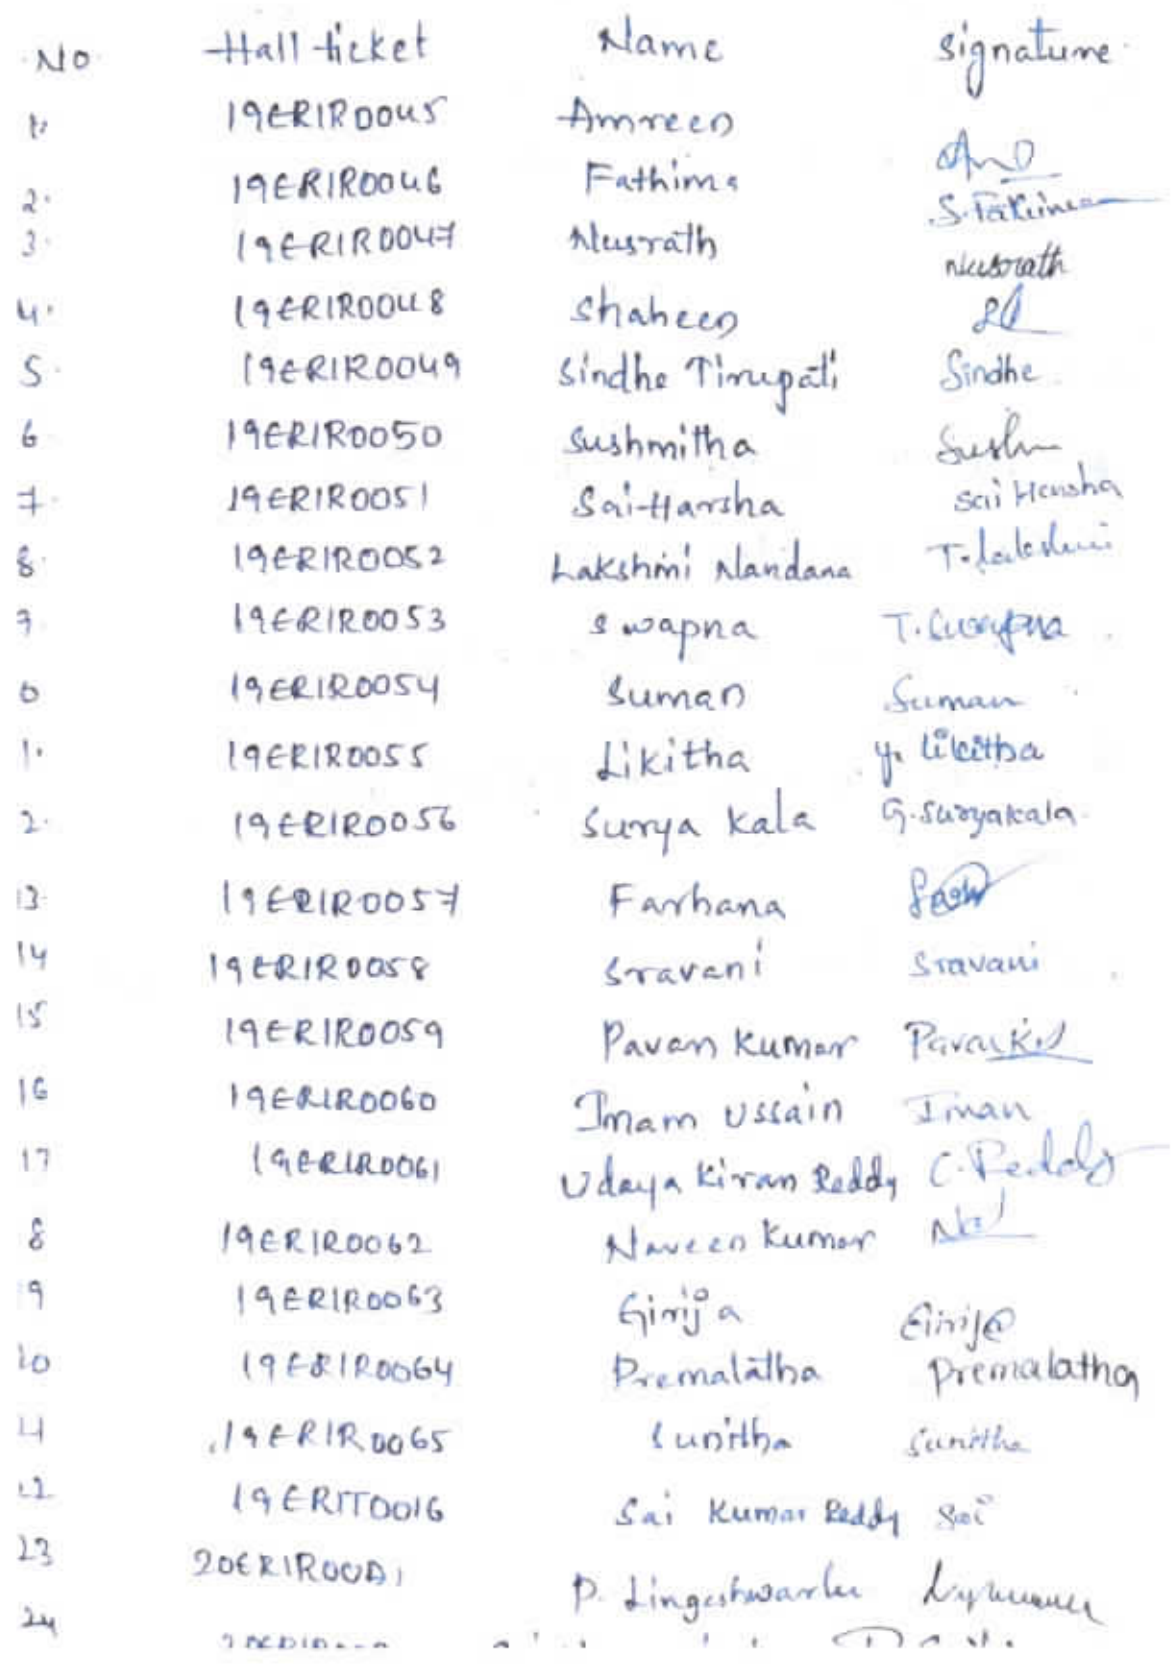 NO Hall ticket Name signature
1. 19ERIR0045 Amreen
2. 19ERIR0046 Fathima S.Fathima
3. 19ERIR0047 Nusrath Nusrath
4. 19ERIR0048 Shaheen
5. 19ERIR0049 Sindhe Tirupati Sindhe
6. 19ERIR0050 Sushmitha Sush
7. 19ERIR0051 Sai-Harsha Sai Harsha
8. 19ERIR0052 Lakshmi Nandana T.Lakshmi
9. 19ERIR0053 Swapna T.Swapna
0 19ERIR0054 Suman Suman
1. 19ERIR0055 Likitha y. likitha
2. 19ERIR0056 Surya Kala G.Suryakala
13. 19ERIR0057 Farhana
14 19ERIR0058 Sravani Sravani
15 19ERIR0059 Pavan Kumar
16 19ERIR0060 Imam Ussain Iman
17 19ERIR0061 Udaya Kiran Reddy C.Reddy
8 19ERIR0062 Naveen Kumar
9 19ERIR0063 Girija Girija
20 19ERIR0064 Premalatha Premalatha
21 19ERIR0065 Sunitha Sunitha
22 19ERIT0016 Sai Kumar Reddy Sai
23 P.
24